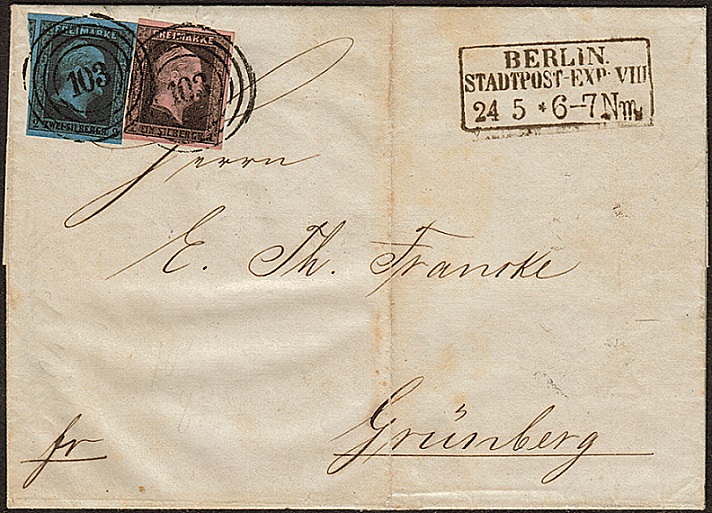 FREIMARKE
103
2 ZWEI SILBERGR. 2
FREIMARKE
103
EIN SILBERGR.
BERLIN.
STADTPOST-EXP. VIII
24 5 * 6-7 Nm.
Herrn
E. Th. Francke
Grünberg
fr